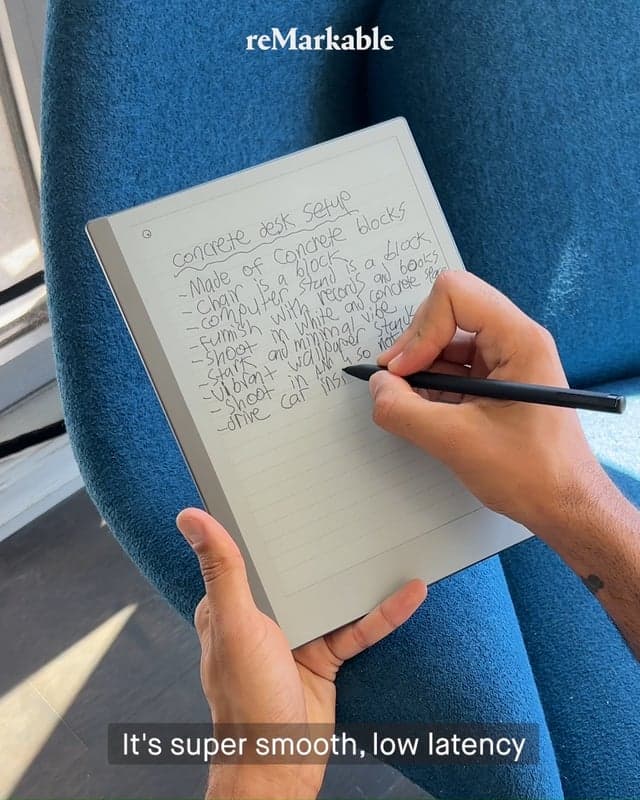 reMarkable
concrete desk setup
- Made of concrete blocks
- Chair is a block
- computer stand is a block
- furnish with records and books
- shoot in white and concrete
- stark and minimal vibe
- vibrant wallpaper
- shoot in so
- drive car
It's super smooth, low latency